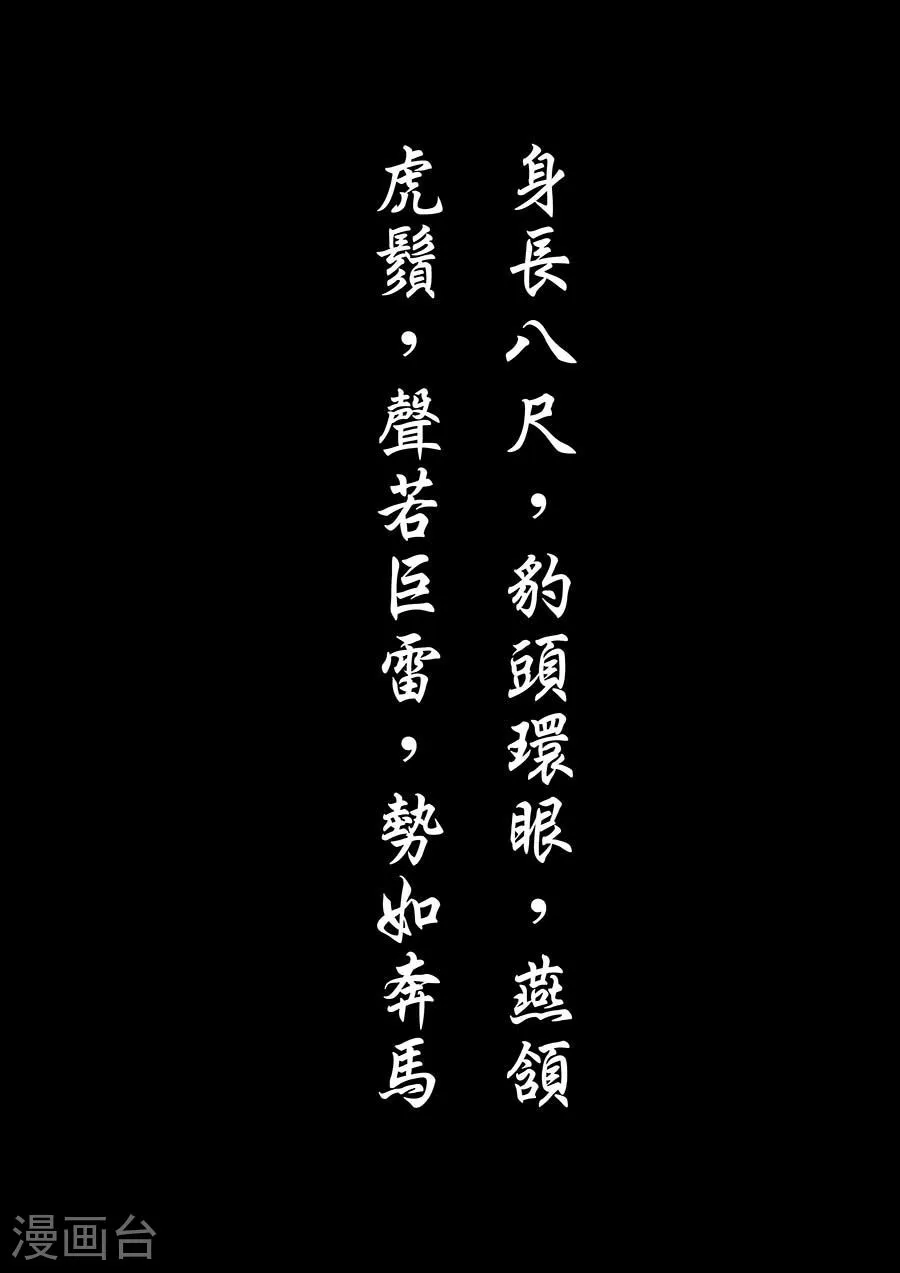 身長八尺，豹頭環眼，燕頷
虎鬚，聲若巨雷，勢如奔馬
漫画台